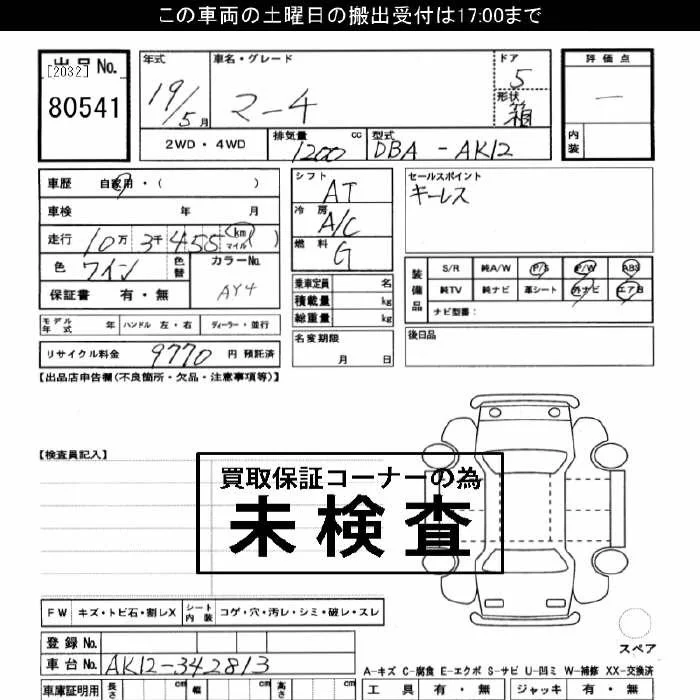 この車両の土曜日の搬出受付は17:00まで
出品No.
[2032]
80541
年式
19/5月
車名・グレード
マーチ
ドア
5
形状
箱
評価点
—
内装
2WD・4WD
排気量 cc
1200
型式
DBA-AK12
車歴 自家用・( )
車検 年 月
走行 10万3千455 km マイル ( )
色 ワイン
色替
カラーNo.
AY4
保証書 有・無
シフト
AT
冷房
A/C
燃料
G
乗車定員 名
積載量 kg
総重量 kg
セールスポイント
キーレス
装備品
S/R 純A/W P/S P/W ABS
純TV 純ナビ 革シート 外ナビ エアB
ナビ型番:
モデル年式 年 ハンドル 左・右 ディーラー・並行
名変期限
月 日
後日品
リサイクル料金 9770 円 預託済
【出品店申告欄(不良箇所・欠品・注意事項等)】
【検査員記入】
買取保証コーナーの為
未検査
FW キズ・トビ石・割レX シート内装 コゲ・穴・汚レ・シミ・破レ・スレ
登録No.
車台No. AK12-342813
スペア
A-キズ C-腐食 E-エクボ S-サビ U-凹ミ W-補修 XX-交換済
車庫証明用 長さ cm 幅 cm 高さ cm
工具 有・無 ジャッキ 有・無